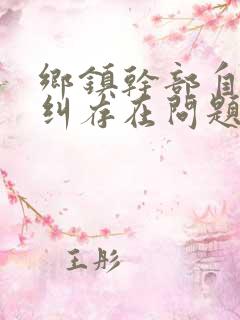 鄉鎮幹部自
糾存在問題
王彤